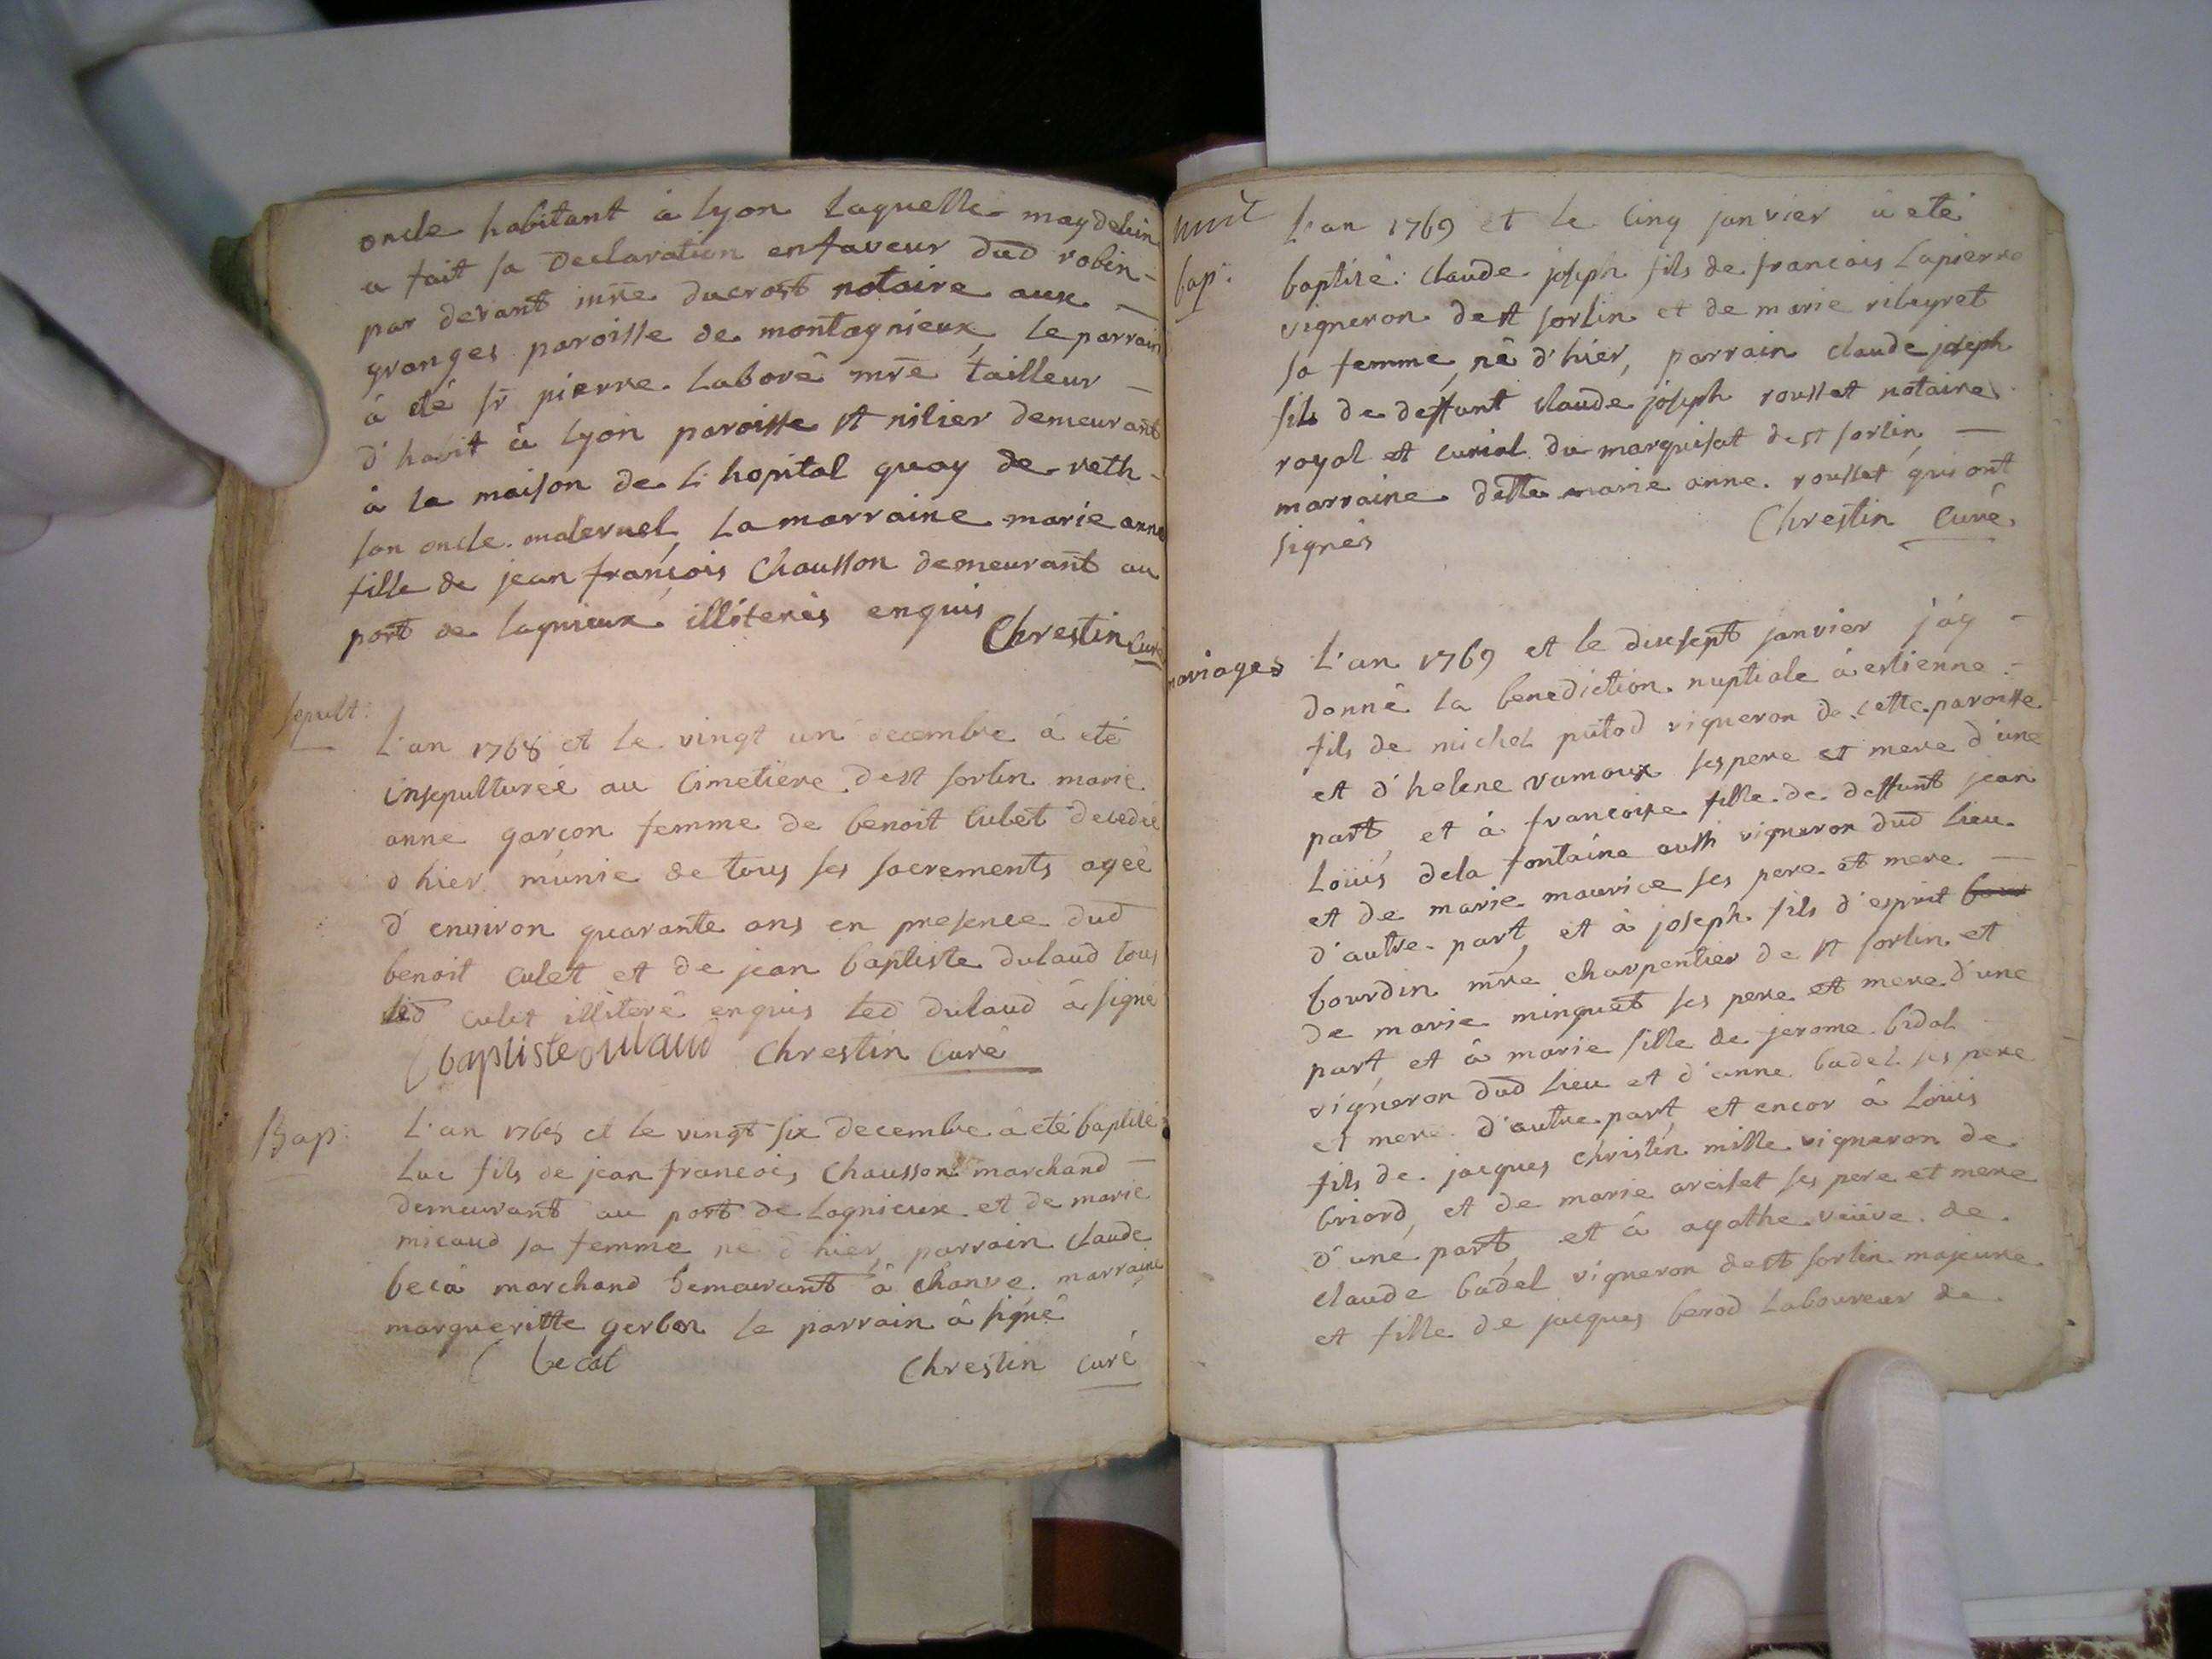 oncle habitant à lyon laquelle magdelein
a fait sa Declaration enfaveur dud robin -
par devant mre ducrost notaire aux -
granges paroisse de montagnieux, le parrain
à eté sr pierre Laboré mre tailleur -
d'habit à lyon paroisse st nisier demeurant
à la maison de L'hopital quay de reth -
son oncle maternel, La marraine marie anne
fille de jean françois Chausson demeurant au
port de lagnieux illiterés enquis
Chrestin Curé
sepult:
L'an 1768 et le vingt un decembre à eté
insepulturéé au Cimetiere dest sorlin marie
anne garçon femme de benoit Culet decedéé
d'hier munie de tous ses sacrements agéé
d'environ quarante ans en presence dud
benoit Culet et de jean baptiste dulaud tous
led culet illiteré enquis led dulaud à signé
baptiste dulaud Chrestin Curé
Bap:
L'an 1768 et le vingt six decembre à eté baptisé
Luc fils de jean francois Chausson marchand -
demeurant au port de Lagnieux et de marie
micaud sa femme né d'hier, parrain Claude
beca marchand demeurant à Chanve marraine
margueritte gerbon le parrain à signé
becat Chrestin Curé
bap:
L'an 1769 et le Cinq janvier à eté
baptisé Claude joseph fils de francois Lapierre
vigneron dest sorlin et de marie ribayret
sa femme, né d'hier, parrain claude joseph
fils de deffunt claude joseph rousset notaire
royal et curial du marquisat dest sorlin -
marraine dette marie anne rousset qui ont
signés Chrestin Curé
mariages
L'an 1769 et le dixsept janvier j'ay -
donné la benediction nuptiale à estienne -
fils de michel putod vigneron de cette paroisse
et d'helene vamoux ses pere et mere d'une
part, et à francoise fille de deffunt jean
Loüis dela fontaine aussi vigneron dud lieu
et de marie maurice ses pere et mere -
d'autre part, et à joseph fils d'esprit
bourdin mre charpentier de st sorlin et
de marie minguet ses pere et mere d'une
part, et à marie fille de jerome bidal
vigneron dud lieu et d'anne badel ses pere
et mere d'autre part, et encor à Loüis
fils de jacques christin mille vigneron de
briord, et de marie arcilet ses pere et mere
d'une part, et à agathe veüve de
claude badel vigneron dest sorlin majeure
et fille de jacques berod Laboureur de